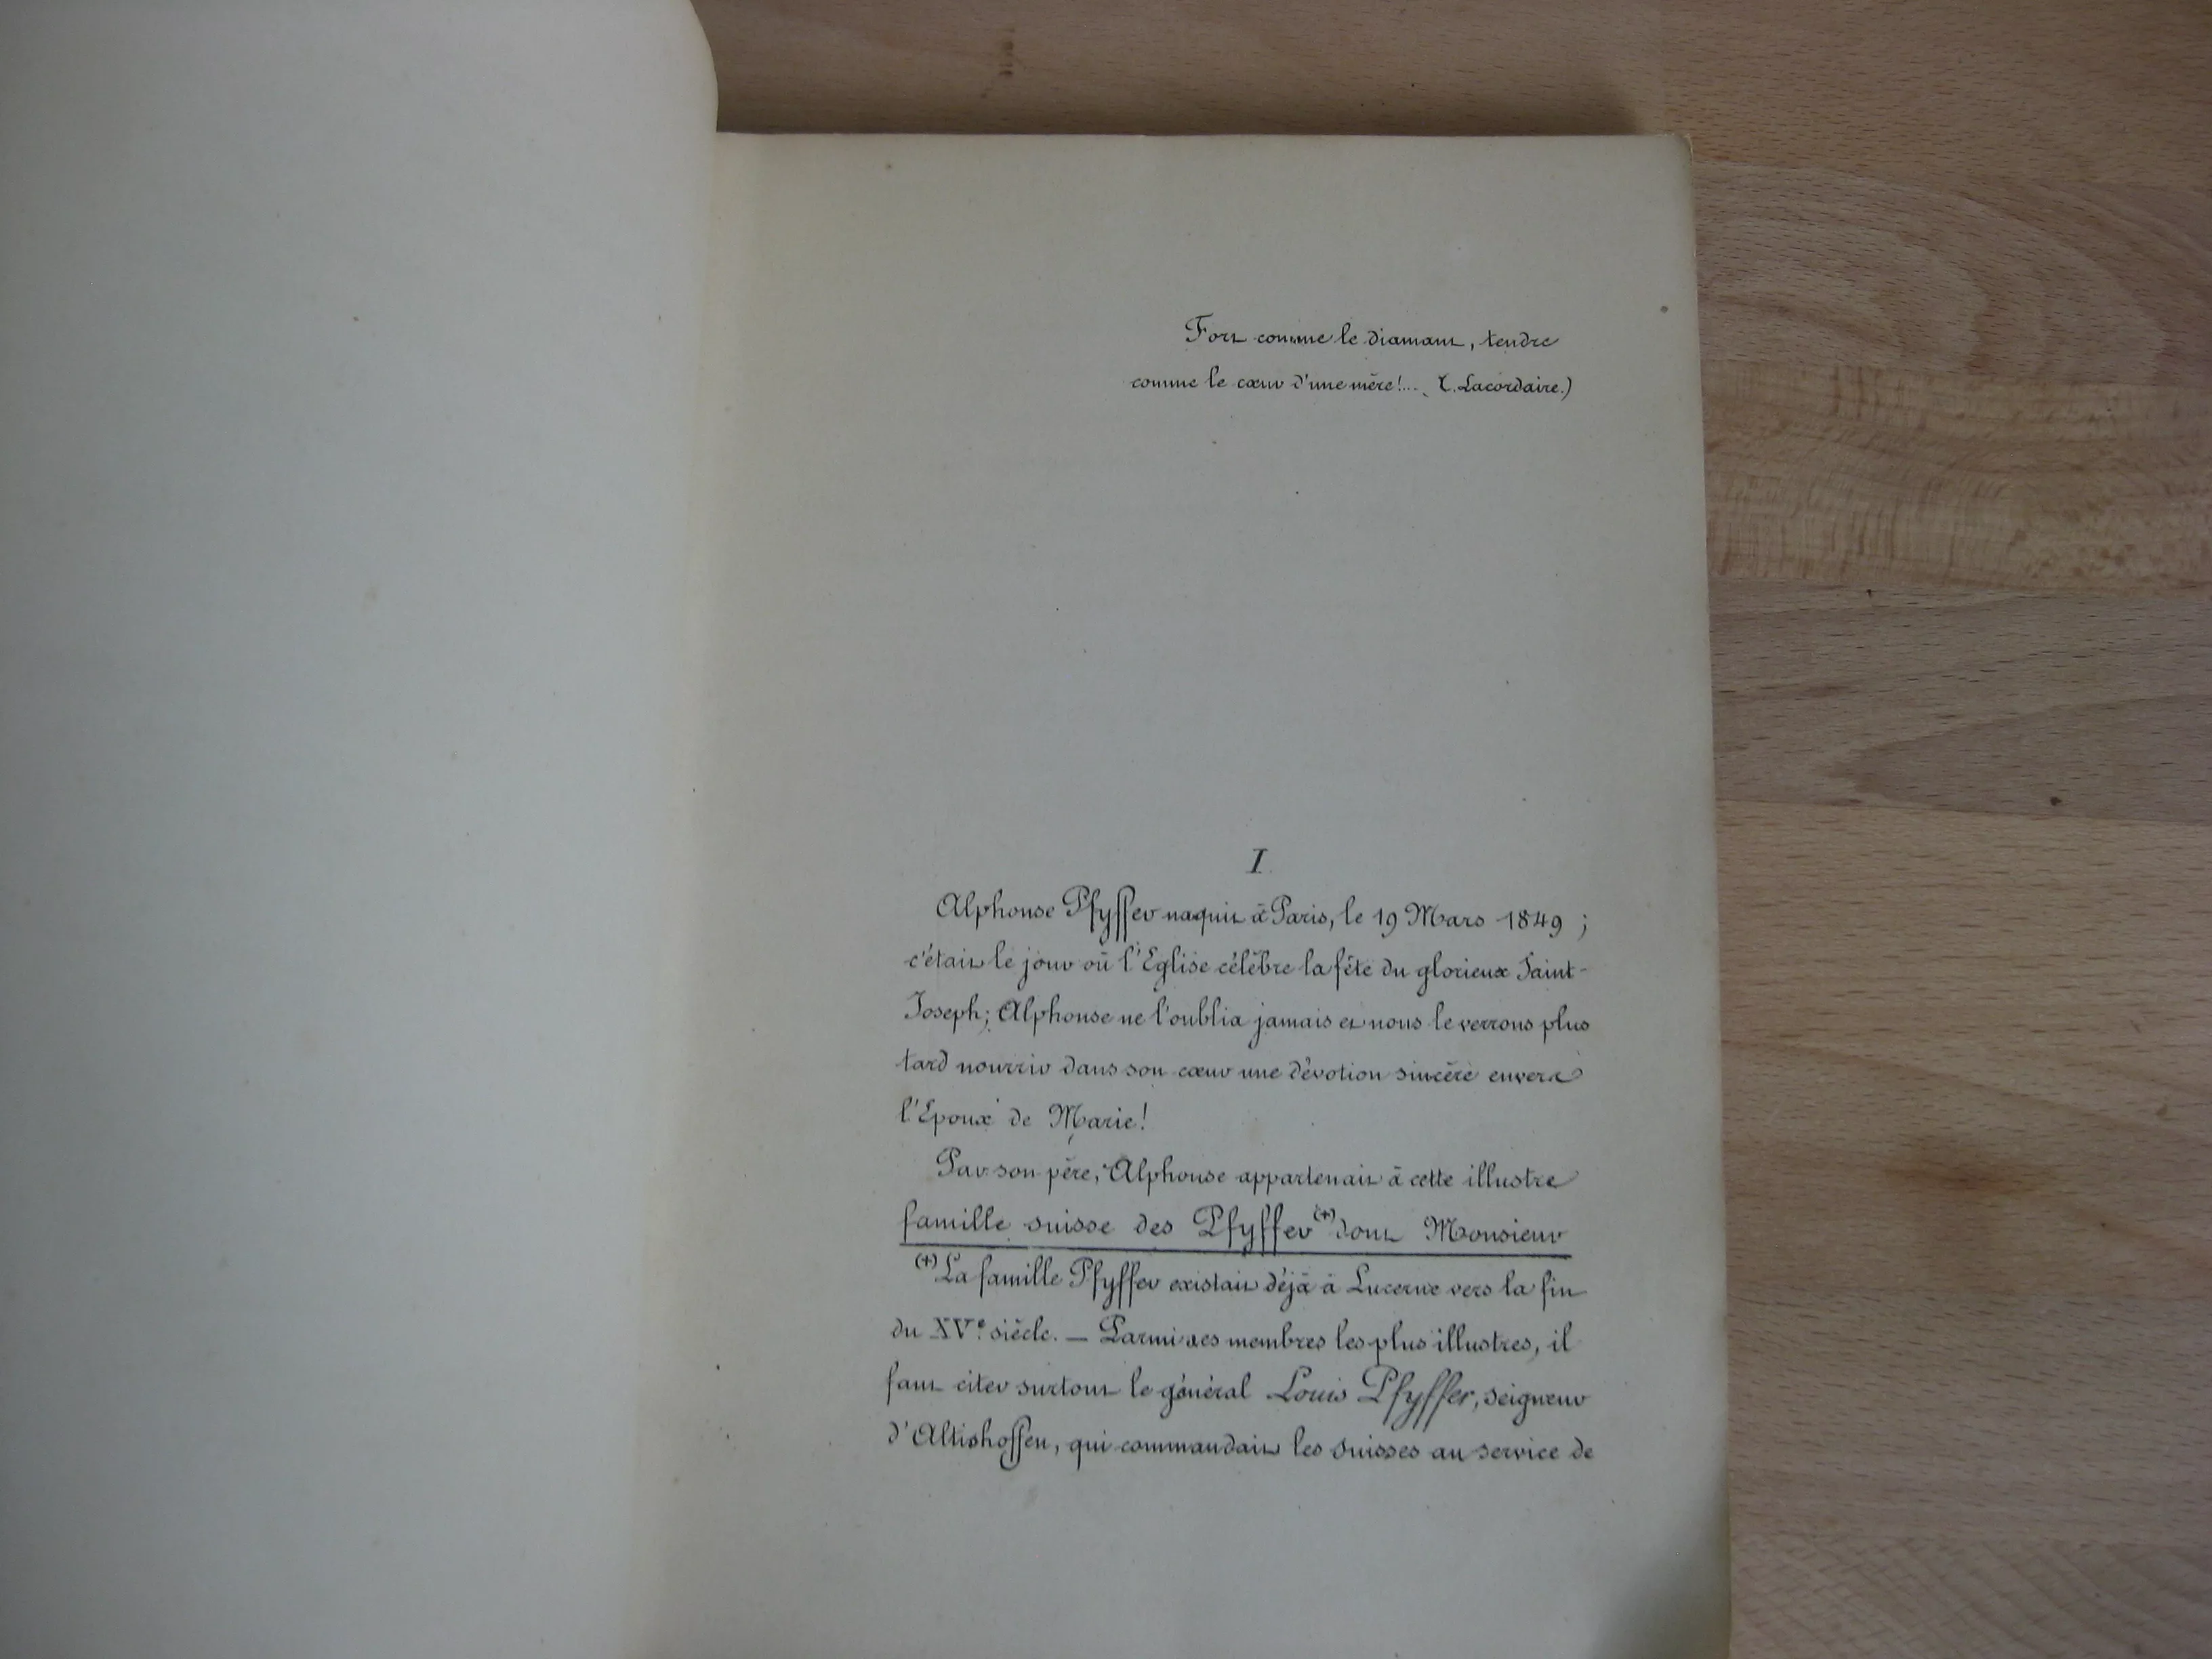 Fort comme le diamant, tendre
comme le cœur d'une mère!... (L. Lacordaire.)
I
Alphonse Pfyffer naquit à Paris, le 19 Mars 1849 ;
c'était le jour où l'Eglise célèbre la fête du glorieux Saint-
Joseph; Alphonse ne l'oublia jamais et nous le verrons plus
tard nourrir dans son cœur une dévotion sincère envers
l'Epoux de Marie!
Par son père, Alphonse appartenait à cette illustre
famille suisse des Pfyffer (+) dont Monsieur
(+) La famille Pfyffer existait déjà à Lucerne vers la fin
du XVe siècle. — Parmi ses membres les plus illustres, il
faut citer surtout le général Louis Pfyffer, seigneur
d'Altishoffen, qui commandait les suisses au service de